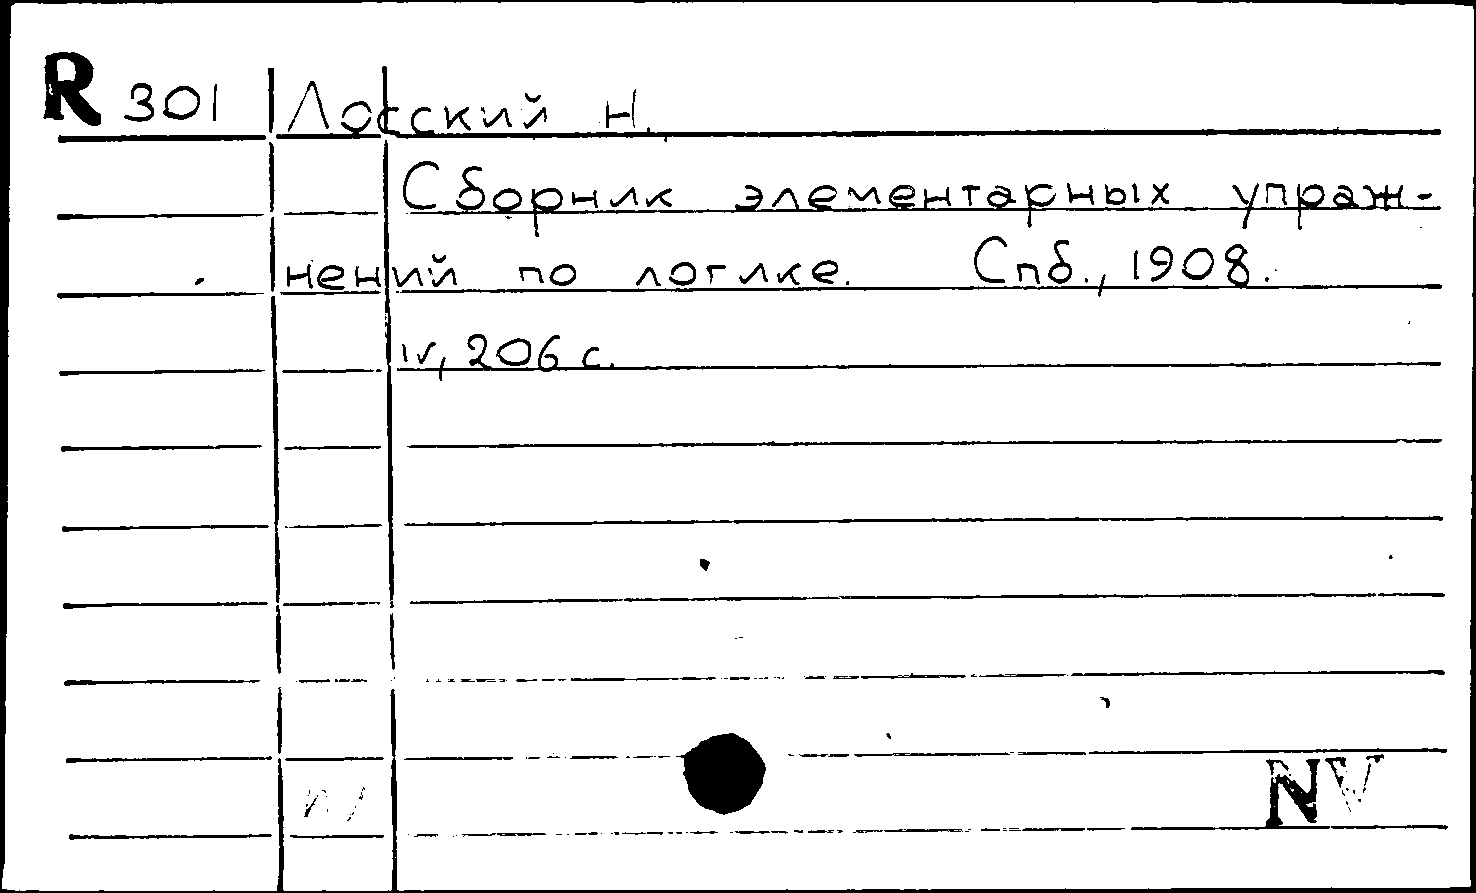 R 301 Лосский Н.
Сборник элементарных упраж-
нений по логике. Спб., 1908.
IV, 206 с.
NV